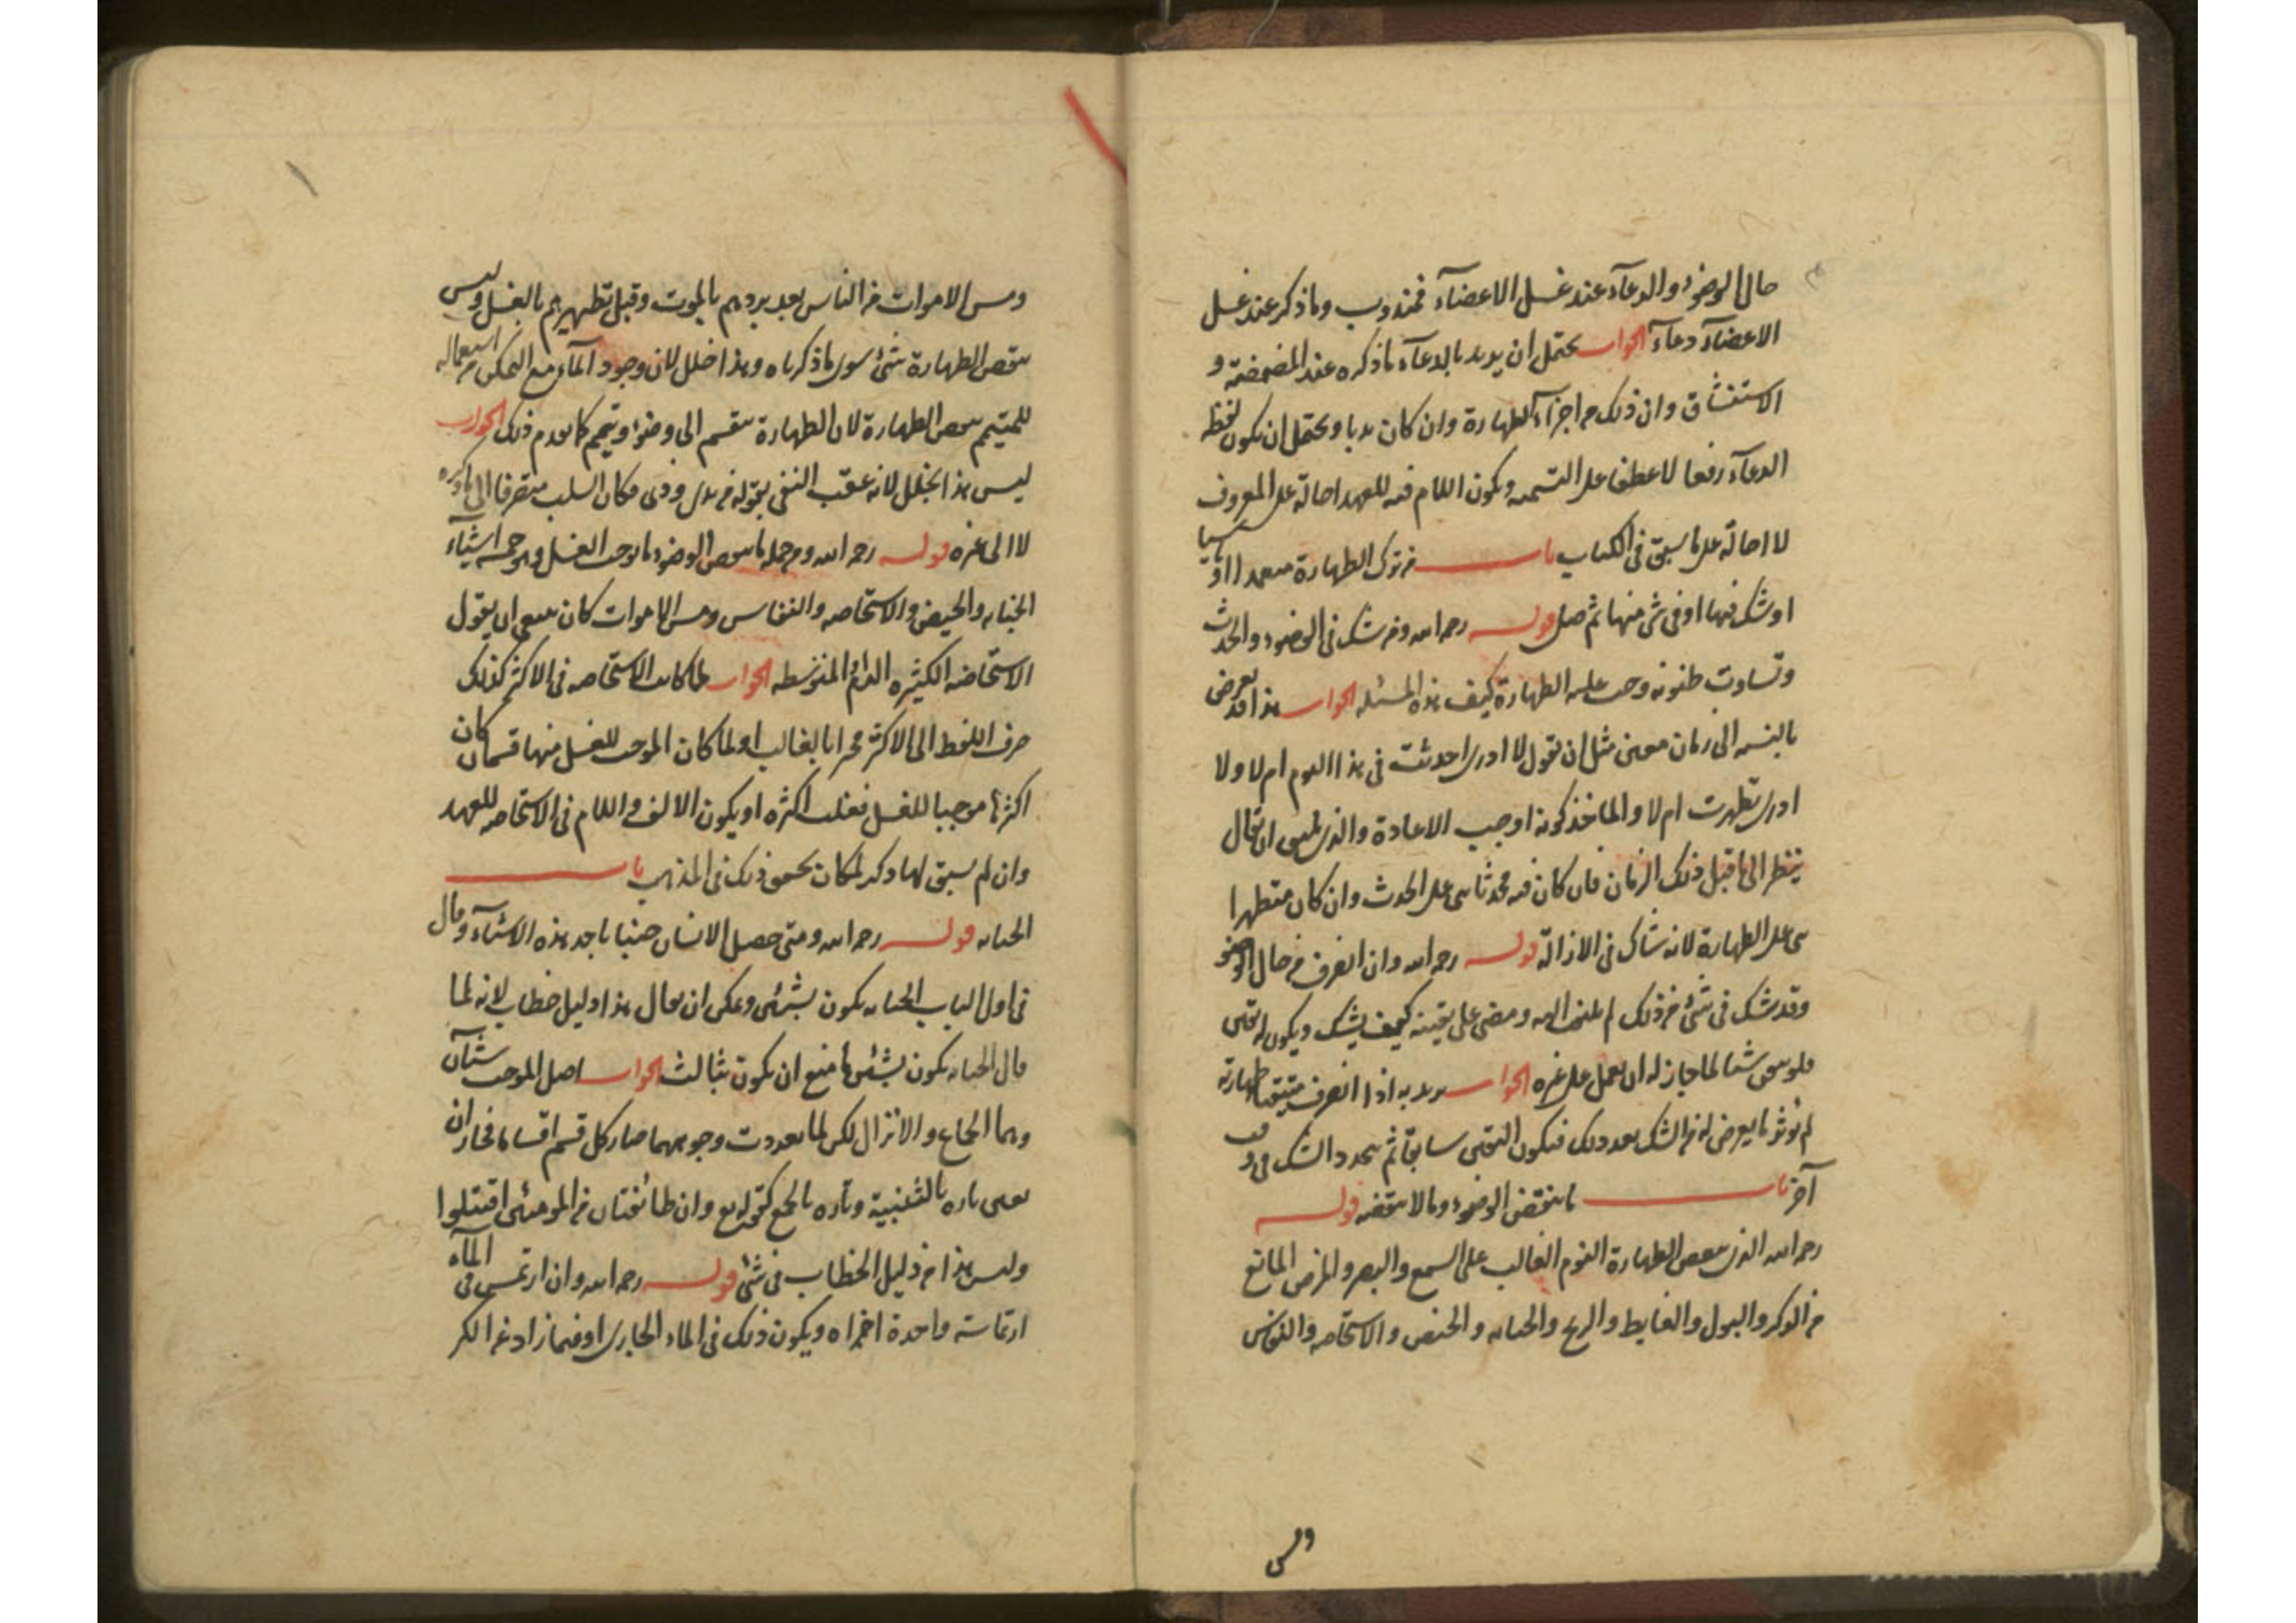 حال الوضوء والدعآء عند غسل الاعضآء فمندوب وما ذكر عند غسل
الاعضآء دعآء الجواب يحتمل ان يريد بالدعآء ما ذكره عند المضمضة و
الاستنشاق وان ذلك من اجزآء الطهارة وان كان ندبا ويحتمل ان يكون لفظ
الدعآء رفعا لا عطفا على التسمية ويكون اللام فيه للعهد احالة على المعروف
لا احالة على ما سبق في الكتاب باب من ترك الطهارة متعمدا او ناسيا
او شك فيها او في شئ منها ثم صلى قوله رحمه الله ومن شك في الوضوء والحدث
وتساوت ظنونه وجب عليه الطهارة كيف هذه المسئلة الجواب هذا قد يعرض
بالنسبة الى زمان معين مثل ان يقول لا ادرى احدثت في هذا اليوم ام لا ولا
ادرى تطهرت ام لا والماخذ كونه اوجب الاعادة والذى ان يقال
ينظر الى ما قبل ذلك الزمان فان كان فيه محدثا بنى على الحدث وان كان متطهرا
بنى على الطهارة لانه شاك في الازالة قوله رحمه الله وان انصرف من حال الوضوء
وقد شك في شئ من ذلك لم يلتفت اليه ومضى على يقينه كيف يشك ويكون له يقين
فلو تيقن شيئا لما جاز له ان يعمل على غيره الجواب يريد به اذا انصرف متيقنا طهارته
لم يؤثر ما يعرض له من الشك بعد ذلك فيكون اليقين سابقا ثم يتجدد الشك في وقت
آخر باب ما ينقض الوضوء وما لا ينقضه قوله
رحمه الله الذى ينقض الطهارة النوم الغالب على السمع والبصر والمرض المانع
من الذكر والبول والغايط والريح والجنابه والحيض والاستحاضه والنفاس
ومس
ومس الاموات من الناس بعد بردهم بالموت وقبل تطهيرهم بالغسل وليس
ينقض الطهارة شئ سوى ما ذكرناه وهذا خلل لان وجود المآء مع التمكن من استعماله
للمتيمم ينقض الطهارة لان الطهارة تنقسم الى وضوء وتيمم كما تقدم ذلك الجواب
ليس هذا بخلل لانه عقب النفى بقوله من بول وذى فكان السلب منصرفا الى ما ذكره
لا الى غيره قوله رحمه الله ومن جملة ما ينقض الوضوء ما يوجب الغسل وهو خمسة اشيآء
الجنابه والحيض والاستحاضه والنفاس ومس الاموات كان ينبغى ان يقول
الاستحاضه الكثيره الدم المتوسطه الجواب لما كانت الاستحاضه في الاكثر كذلك
صرف اللفظ الى الاكثر بالغالب او لما كان الموجب للغسل منها قسمان كان
اكثرها موجبا للغسل فغلب اكثره او يكون الالف واللام في الاستحاضه للعهد
وان لم يسبق لها ذكر لمكان تحقق ذلك في المذهب باب
الجنابه قوله رحمه الله ومتى حصل الانسان جنبا باحد هذه الاشيآء وقال
في اول الباب الجنابه تكون بشيئين ويمكن ان يقال هذا دليل خطاب لانه لما
قال الجنابه تكون بشيئين ما منع ان تكون بثالث الجواب اصل الموجب شيئآن
وهما الجماع والانزال لكن لما تعددت وجوههما صار كل قسم اقساما فجاز ان
يعبر تاره بالتثنية وتاره بالجمع كقوله تع وان طائفتان من المومنين اقتتلوا
وليس هذا من دليل الخطاب في شئ قوله رحمه الله وان ارتمس في المآء
ارتماسة واحدة اجزاه ويكون ذلك في الماء الجارى او فيما زاد على الكر